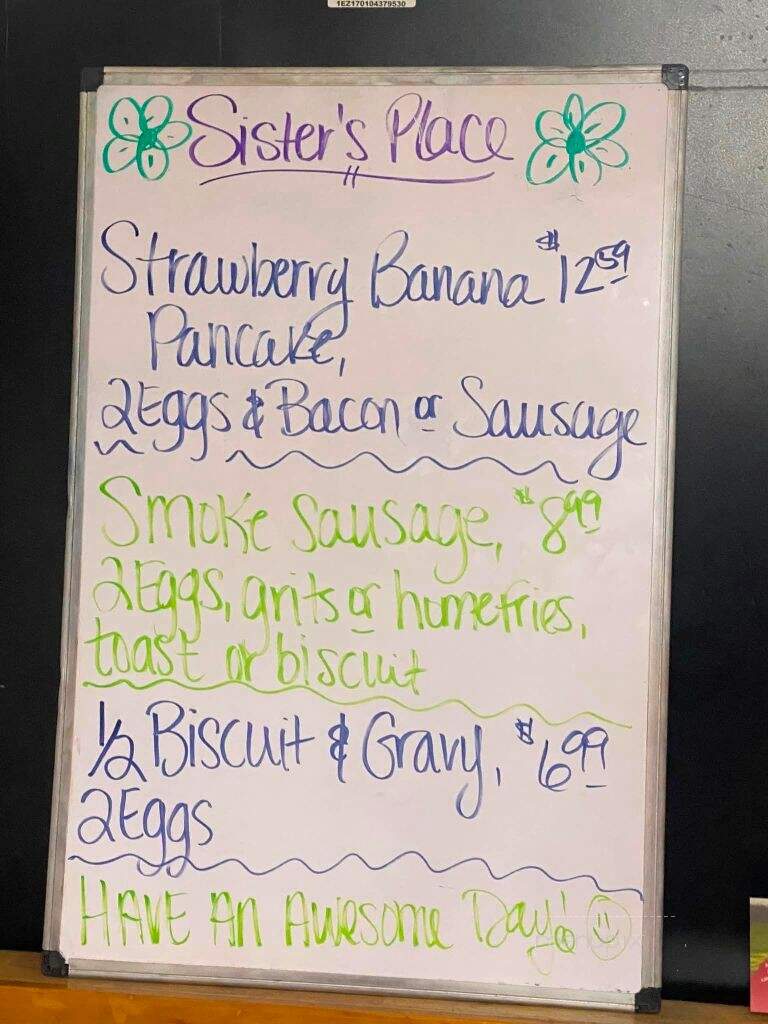 1EZ170104379530
Sister's Place
Strawberry Banana $12.59
Pancake,
2 Eggs & Bacon or Sausage
Smoke Sausage, $8.99
2 Eggs, grits or homefries,
toast or biscuit
1/2 Biscuit & Gravy, $6.99
2 Eggs
HAVE AN AWESOME Day!